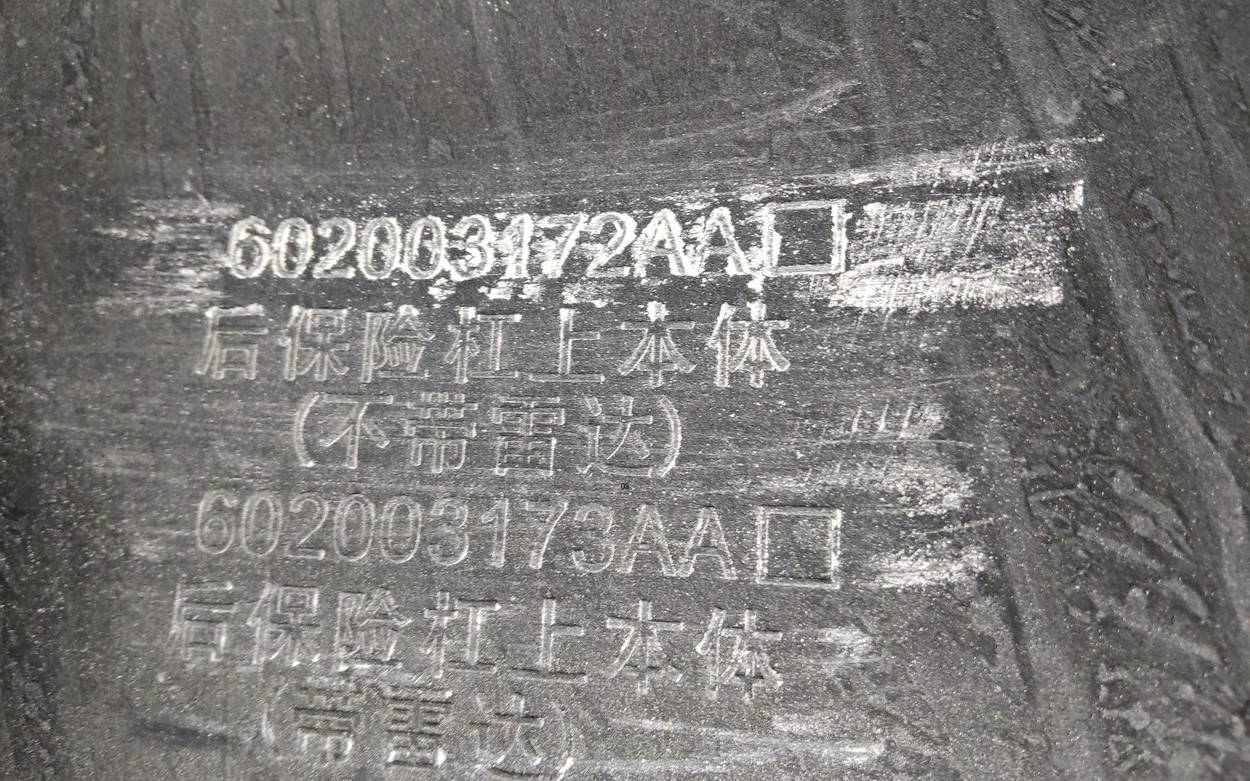 602003172AA□
后保险杠上本体
(不带雷达)
602003173AA□
后保险杠上本体
(带雷达)